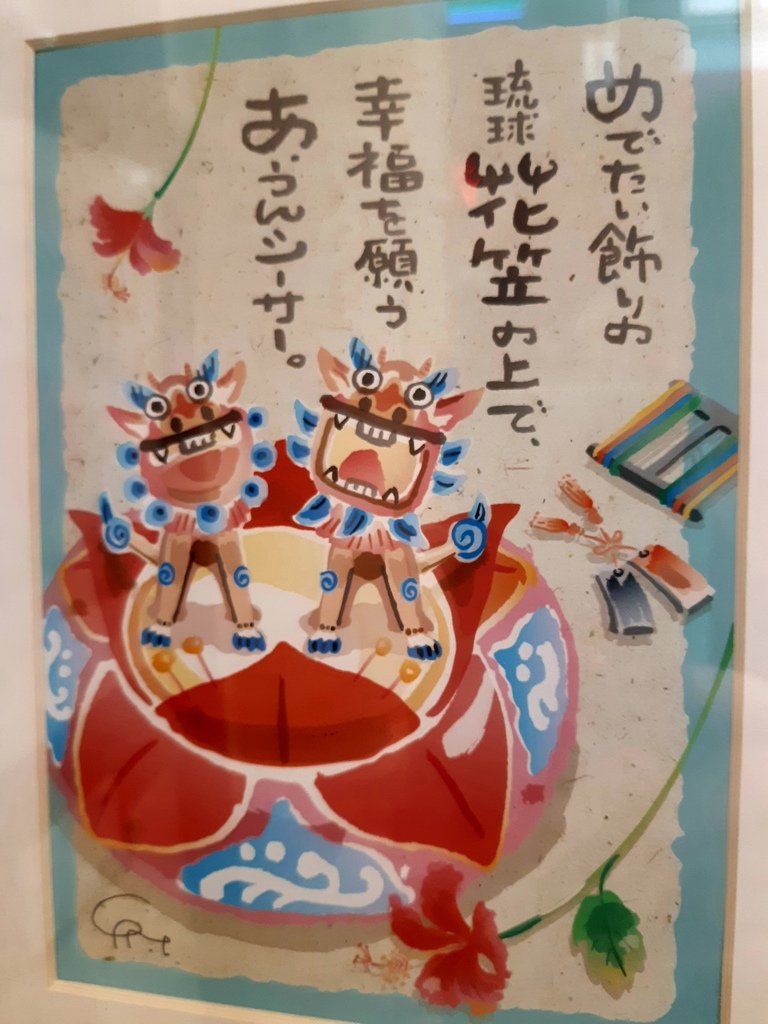 めでたい飾りの
琉球花笠の上で、
幸福を願う
あ・うんシーサー。